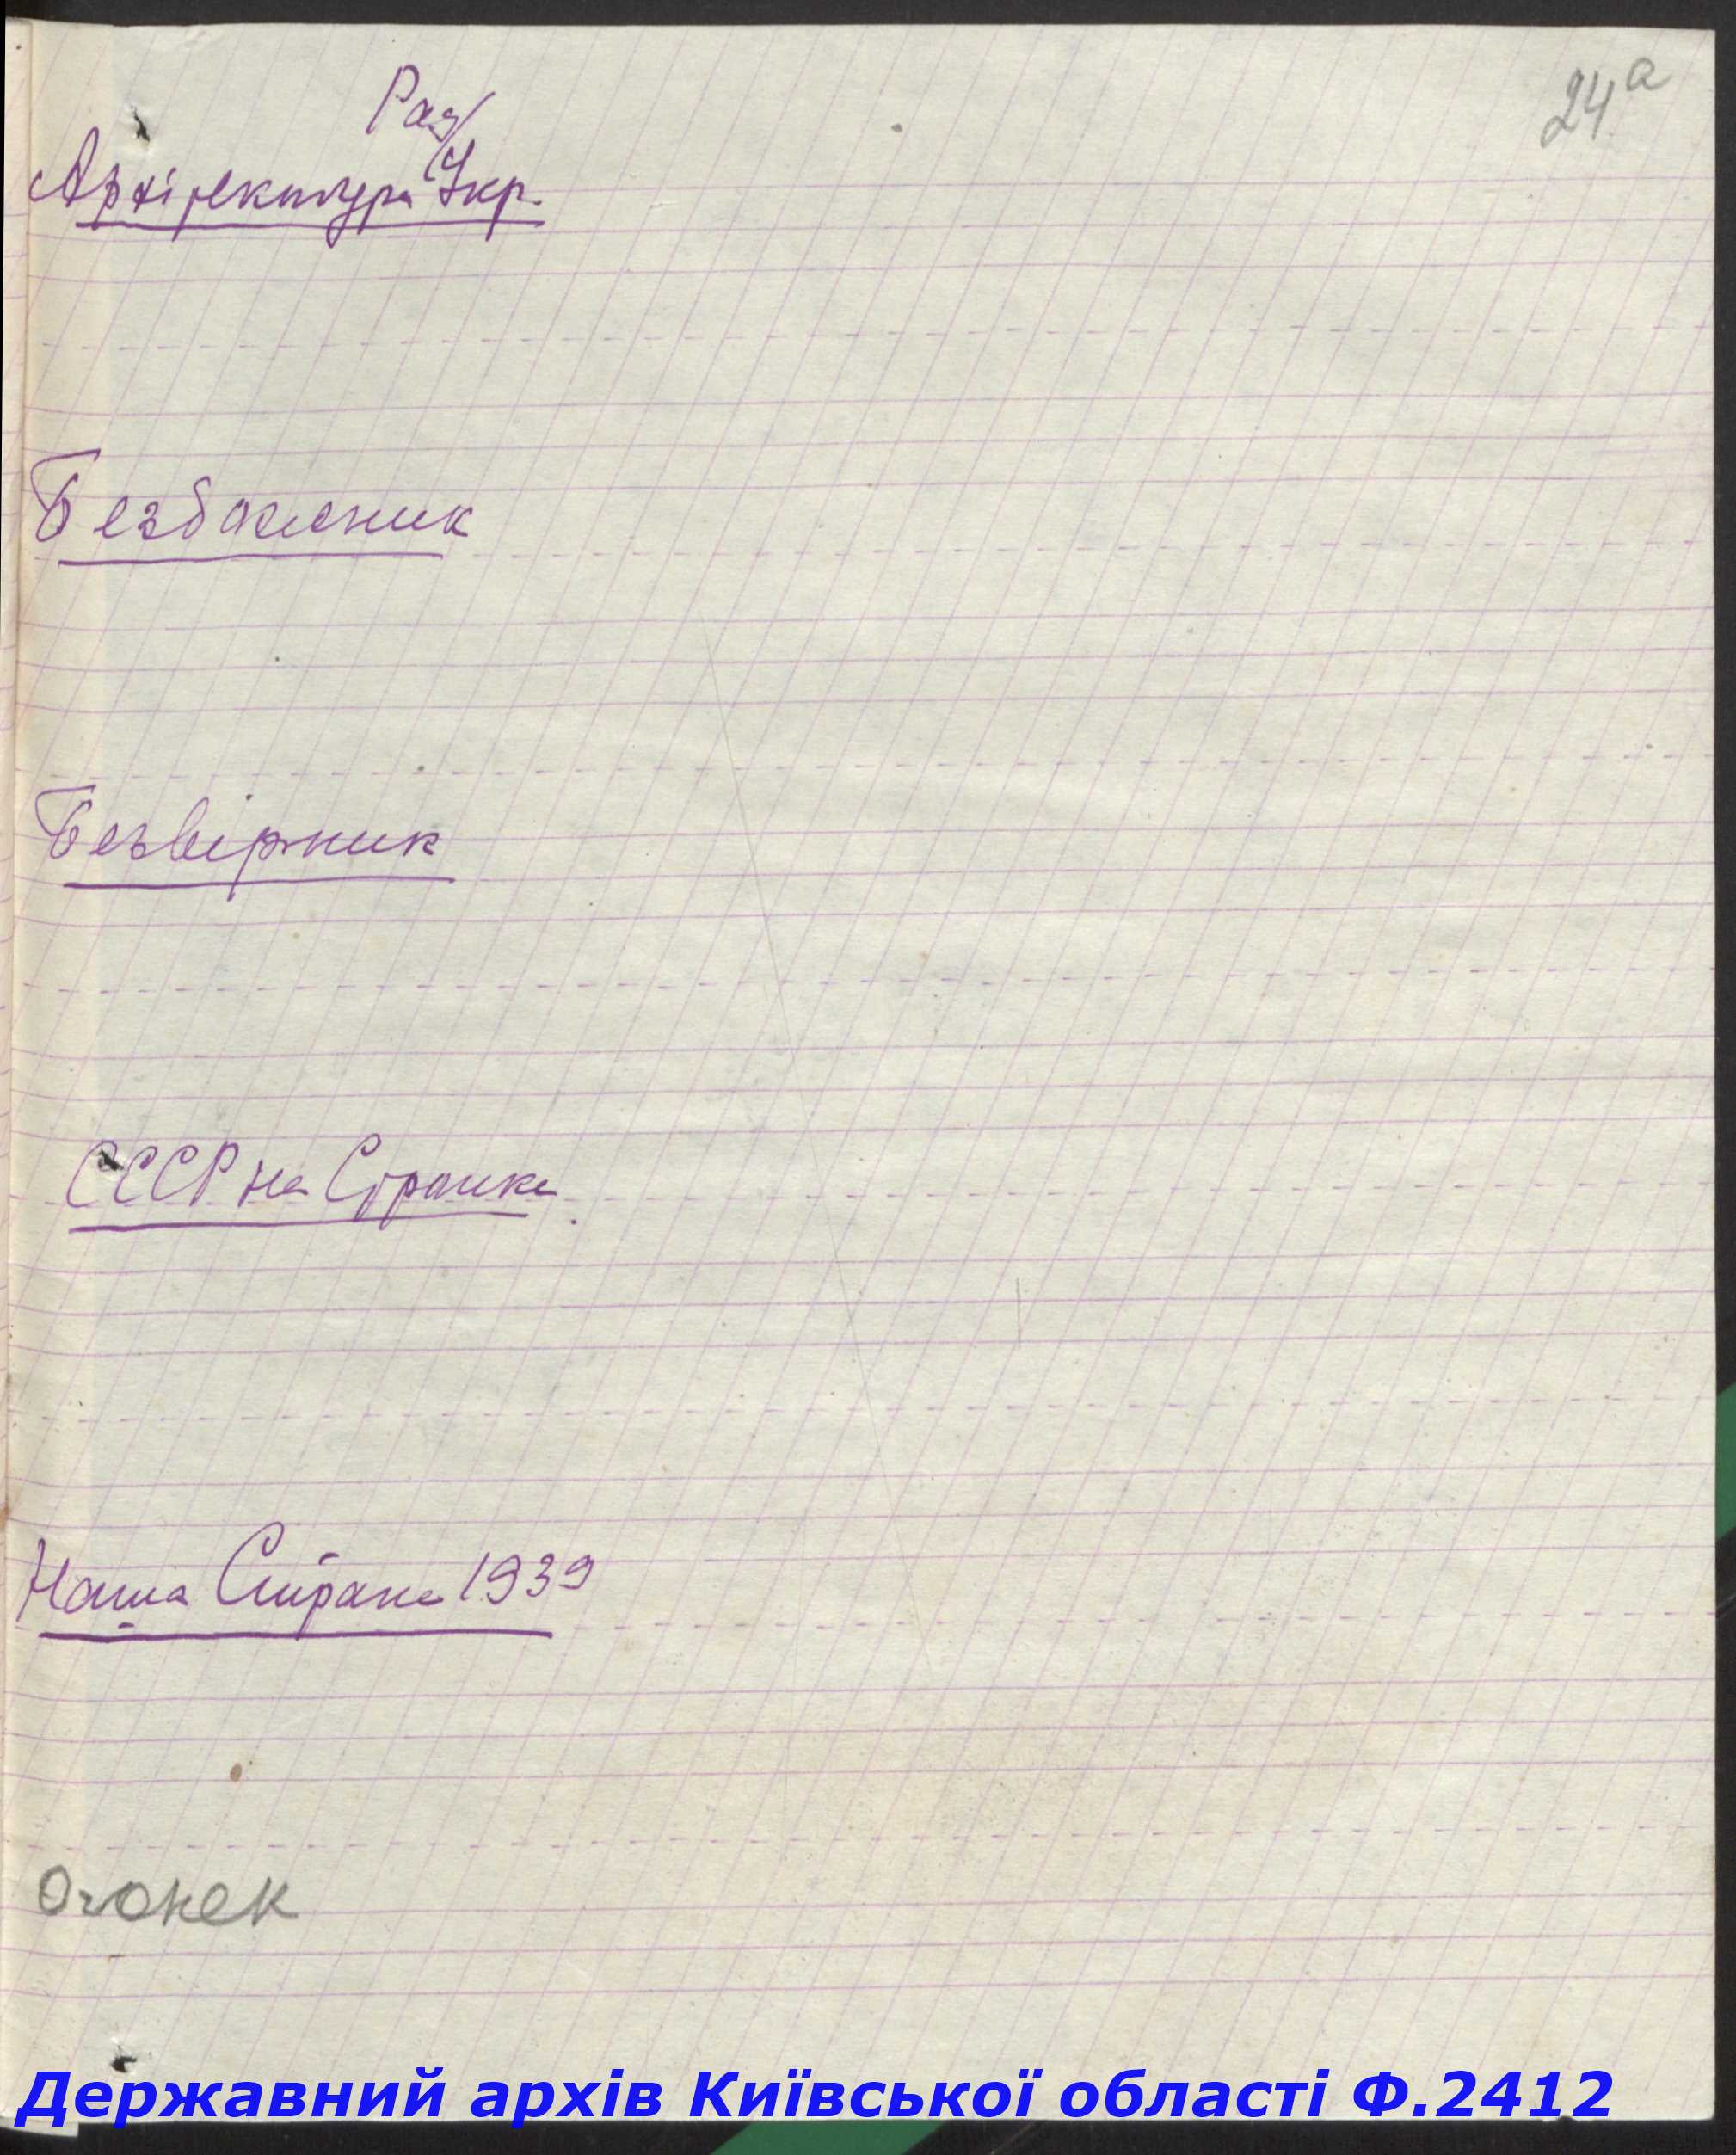 24а
Рад
Архітектура Укр.
Безбожник
Безвірник
СССР на Стройке
Наша Страна 1939
Огонек
Державний архів Київської області Ф.2412